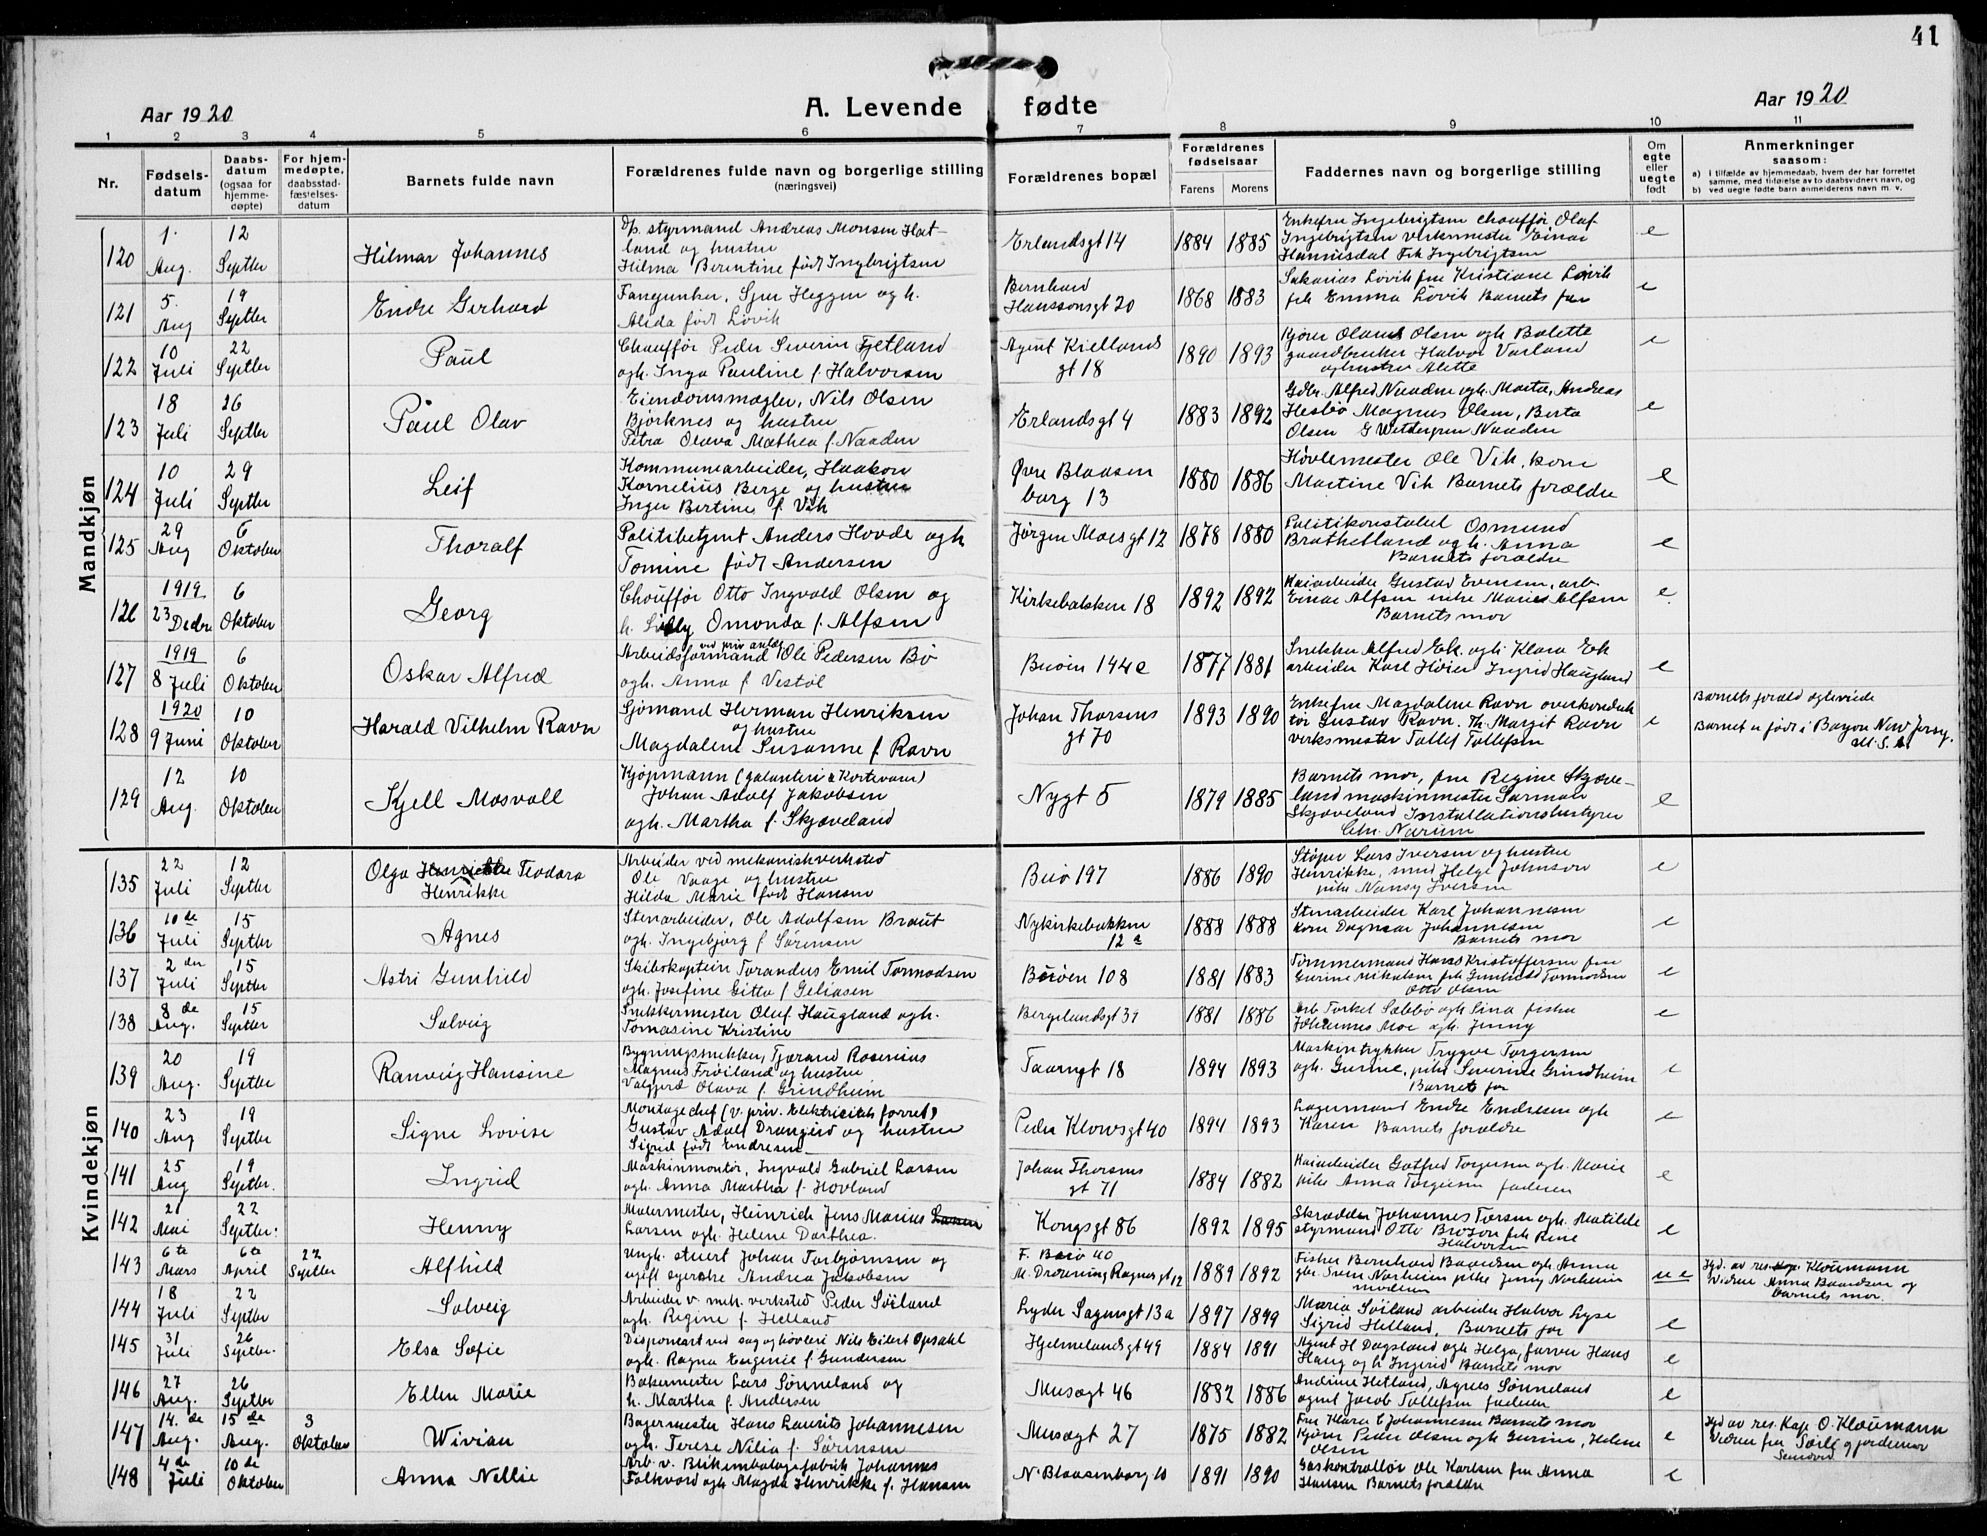 41
Aar 1920
A. Levende fødte
Aar 1920
1 2 3 4 5 6 7 8 9 10 11
Nr.
Fødsels-datum
Daabs-datum (ogsaa for hjemme-døpte)
For hjem-medøpte, daabsstad-fæstelses-datum
Barnets fulde navn
Forældrenes fulde navn og borgerlige stilling (næringsvei)
Forældrenes bopæl
Forældrenes fødselsaar
Farens Morens
Faddernes navn og borgerlige stilling
Om egte eller uegte født
Anmerkninger
saasom:
a) i tilfælde av hjemmedaab, hvem der har forrettet samme, med tilføielse av to daabsvidners navn, og
b) ved uegte fødte barn anmelderens navn m. v.
Mandkjøn
120 1. Aug. 12 Septbr Hilmar Johannes
styrmand Andreas Monsen Hat-
land og hustru
Hilma Berentine født Ingebrigtsen
Erlandsgt 14 1884 1885
Enkefru Ingebrigtsen chauffør Olaf
Ingebrigtsen verksmester Einar
Hannesdal Frk Ingebrigtsen
e
121 5. Aug 19 Septbr Endre Gerhard
Fangunker, Sjur Heggen og h.
Alida født Løvik
Bernhard
Hanssonsgt 20 1868 1883
Sakarias Løvik fru Kristiane Løvik
frk Emma Løvik Barnets far
e
122 10 Juli 22 Septbr Paul
Chauffør Peder Severin Fjetland
og h. Inga Pauline f. Halvorsen
Agent Kiellands
gt 18 1890 1893
Kjører Olaus Olsen og h Bolette
gaardbruker Halvor Varland
og hustru Alette
e
123 18 Juli 26 Septbr Paul Olav
Eiendomsmægler, Nils Olsen
Bjorknes og hustru
Petra Olava Mathea f. Naaden
Erlandsgt 4 1883 1892
Gdbr. Alfred Naaden og h. Marta, Andreas
Hesbø Magnus Olsen, Berta
Olsen G Wetdergren Naaden
e
124 10 Juli 29 Septbr Leif
Kommunearbeider, Haakon
Kornelius Berge og hustru
Inger Bertine f. Vik
Øvre Blaasen
borg 13 1880 1886
Høvlemester Ole Vik, kone
Martine Vik Barnets forældre
e
125 29 Aug 6 Oktober Thoralf
Politibetjent Anders Hovde og h
Tomine født Andersen
Jørgen Moesgt 12 1878 1880
Politikonstabel Osmund
Brathetland og h. Anna
Barnets forældre
e
126 1919 23 Decbr 6 Oktober Georg
Chauffør Otto Ingvald Olsen og
h. Lilly Omonda f. Alfsen
Kirkebakken 18 1892 1892
Kaiarbeider Gustav Evensen, arb
Einar Alfsen enke Marie Alfsen
Barnets mor
e
127 1919 8 Juli 6 Oktober Oskar Alfred
ved priv anlæg
Arbeidsformand Ole Pedersen Bø
og h. Anna f. Vestøl
Buøen 144c 1877 1881
Snekker Alfred Ek. og h. Klara Ek
arbeider Karl Høier Ingrid Haugland
e
128 1920 9 Juni 10 Oktober Harald Vilhelm Ravn
Sjømand Herman Henriksen
og hustru
Magdalene Susanne f Ravn
Johan Thorsens
gt 70 1893 1890
Enkefru Magdalene Ravn overkonduk
tør Gustav Ravn. Th. Margit Ravn
verksmester Tollef Tollefsen
e
Barnets foræld ogtevide
Barnet er født i Bayon New Jersy.
U. S. A.
129 12 Aug. 10 Oktober Kjell Mosvoll
Kjøpmann (galanteri & Kortevare)
Johan Adolf Jakobsen
og h. Martha f. Skjæveland
Nygt 5 1879 1885
Barnets mor, fru Regine Skjæve-
land maskinmester Sørman
Skjæveland Installationsbestyrer
Chr. Nærum
e
Kvindekjøn
135 22 Juli 12 Septbr Olga Henrikke Teodora
Henrikke
Arbeider ved mekanisk verksted
Ole Vaage og hustru
Hilda Marie født Hansen
Buø 197 1886 1890
Støper Lars Iversen og hustru
Henrikke, smed Helge Johnson
pike Nansy Iversen
e
136 10 de Juli 15 Septbr Agnes
Stenarbeider, Ole Adolfsen Braut
og h. Ingebjorg f Sørensen
Nykirkebakken
12 a 1888 1888
Stenarbeider Karl Johannesen
kone Dagmar Johannesen
Barnets mor
e
137 2 den Juli 15 Septbr Astri Gunhild
Skibskaptein Torandus Emil Tormodsen
og h. Josefine Gitta f Geliasen
Børøen 108 1881 1883
Tømmermand Hans Kristoffersen fru
Gurine Mikalsen frk Gunhild Tormodsen
Otto Olsen
e
138 8 de Aug. 15 Septbr Solveig
Snekkermester Oluf Haugland og h.
Tomasine Kristine
Bergelandsgt 31 1881 1886
Arb Torkel Sæbbø og h Sina fisker
Johannes Moe og h. Jenny
e
139 20 Aug. 19 Septbr Ranveig Hansine
Bygningssnekker, Tjerand Rosenius
Magnus Frøiland og hustru
Valgjerd Olava f Grindheim
Taarngt 18 1894 1893
Maskintrykker Trygve Torgersen
og h. Gurine, pike Severine Grindheim
Barnets far
e
140 23 Aug 19 Septbr Signe Lovise
Montagechef (v. priv. Elektricitets forret)
Gustav Adolf Drangeid og hustru
Sigrid født Endresen
Peder Klowsgt 40 1894 1893
Lagermand Endre Endresen og h
Karen Barnets forældre
e
141 25 Aug 19 Septbr. Ingrid
Maskinmontør, Ingvald Gabriel Larsen
og h. Anna Martha f. Hovland
Johan Thorsens
gt 71 1884 1882
Kaiarbeider Gotfred Torgersen og h. Marie
pike Anna Torgersen faderen
e
142 21 Mai 22 Septbr. Henny
Malermester, Heinrich Jens Marius
Larsen og h. Helene Dorthea.
Kongsgt 86 1892 1895
Skrædder Johannes Torsen og h. Matilde
styrmand Otto frk Rine
Halvorsen
e
143 6te Mars 6te April 22 Septbr Alfhild
Ungk. stuert Johan Torbjørnsen og
ugift syerske Andrea Jakobsen
F. Buø 40
M. Dronning Ragnas gt 12 1889 1892
Fisker Bernhard Baardsen og h Anna
gbr Sven Norheim pike Jenny Norheim
moderen
u e
Hjd. av res. kap. Kloumann
Vidner Anna Baardsen og
barnets mor.
144 18 Juli 22 Septbr Solveig
Arbeider v. mek. verksted Peder Soiland
og h. Regine f. Helland
Lyder Sagensgt 13a 1897 1899
Maria Soiland arbeider Halvor Lyse
Sigrid Helland, Barnets far
e
145 31 Juli 26 Septbr. Elsa Sofie
Disponent ved sag og høvleri Nils Eilert Opsahl
og h. Ragna Eugenie f Gundersen
Hjelmelandsgt 49 1884 1891
Agent H Dagsland og h Helga, farver Hans
Haug og h Ingerid Barnets mor
e
146 27 Aug. 26 Septbr Ellen Marie
Bakermester Lars Sønneland og
h. Martha f. Andersen
Musægt 46 1882 1886
Andrine Hetland, Agnes Sønneland
agent Jacob Tollefsen faderen
e
147 14. de Aug. 15 de Aug. 3 Oktober Wivian
Bagermester Hans Laurits Johannesen
og h. Terese Nilia f. Sørensen
Musægt 27 1875 1882
Fru Klara E Johannesen Barnets mor
Kjører Peder Olsen og h Gurine, Helene
Olsen
e
Hjd av res. Kap. O. Kloumann
Vidner fru Særli gjordemor
148 4 de Juli 10 de Oktober Anna Nellie
Arb. v. Blikemballagefabrik Johannes
Folkvord og h. Magda Henrikke f. Hansen
N. Blaasenborg 10 1891 1890
Gaskontrollør Ole Karlsen fru Anna
Hansen Barnets forældre
e